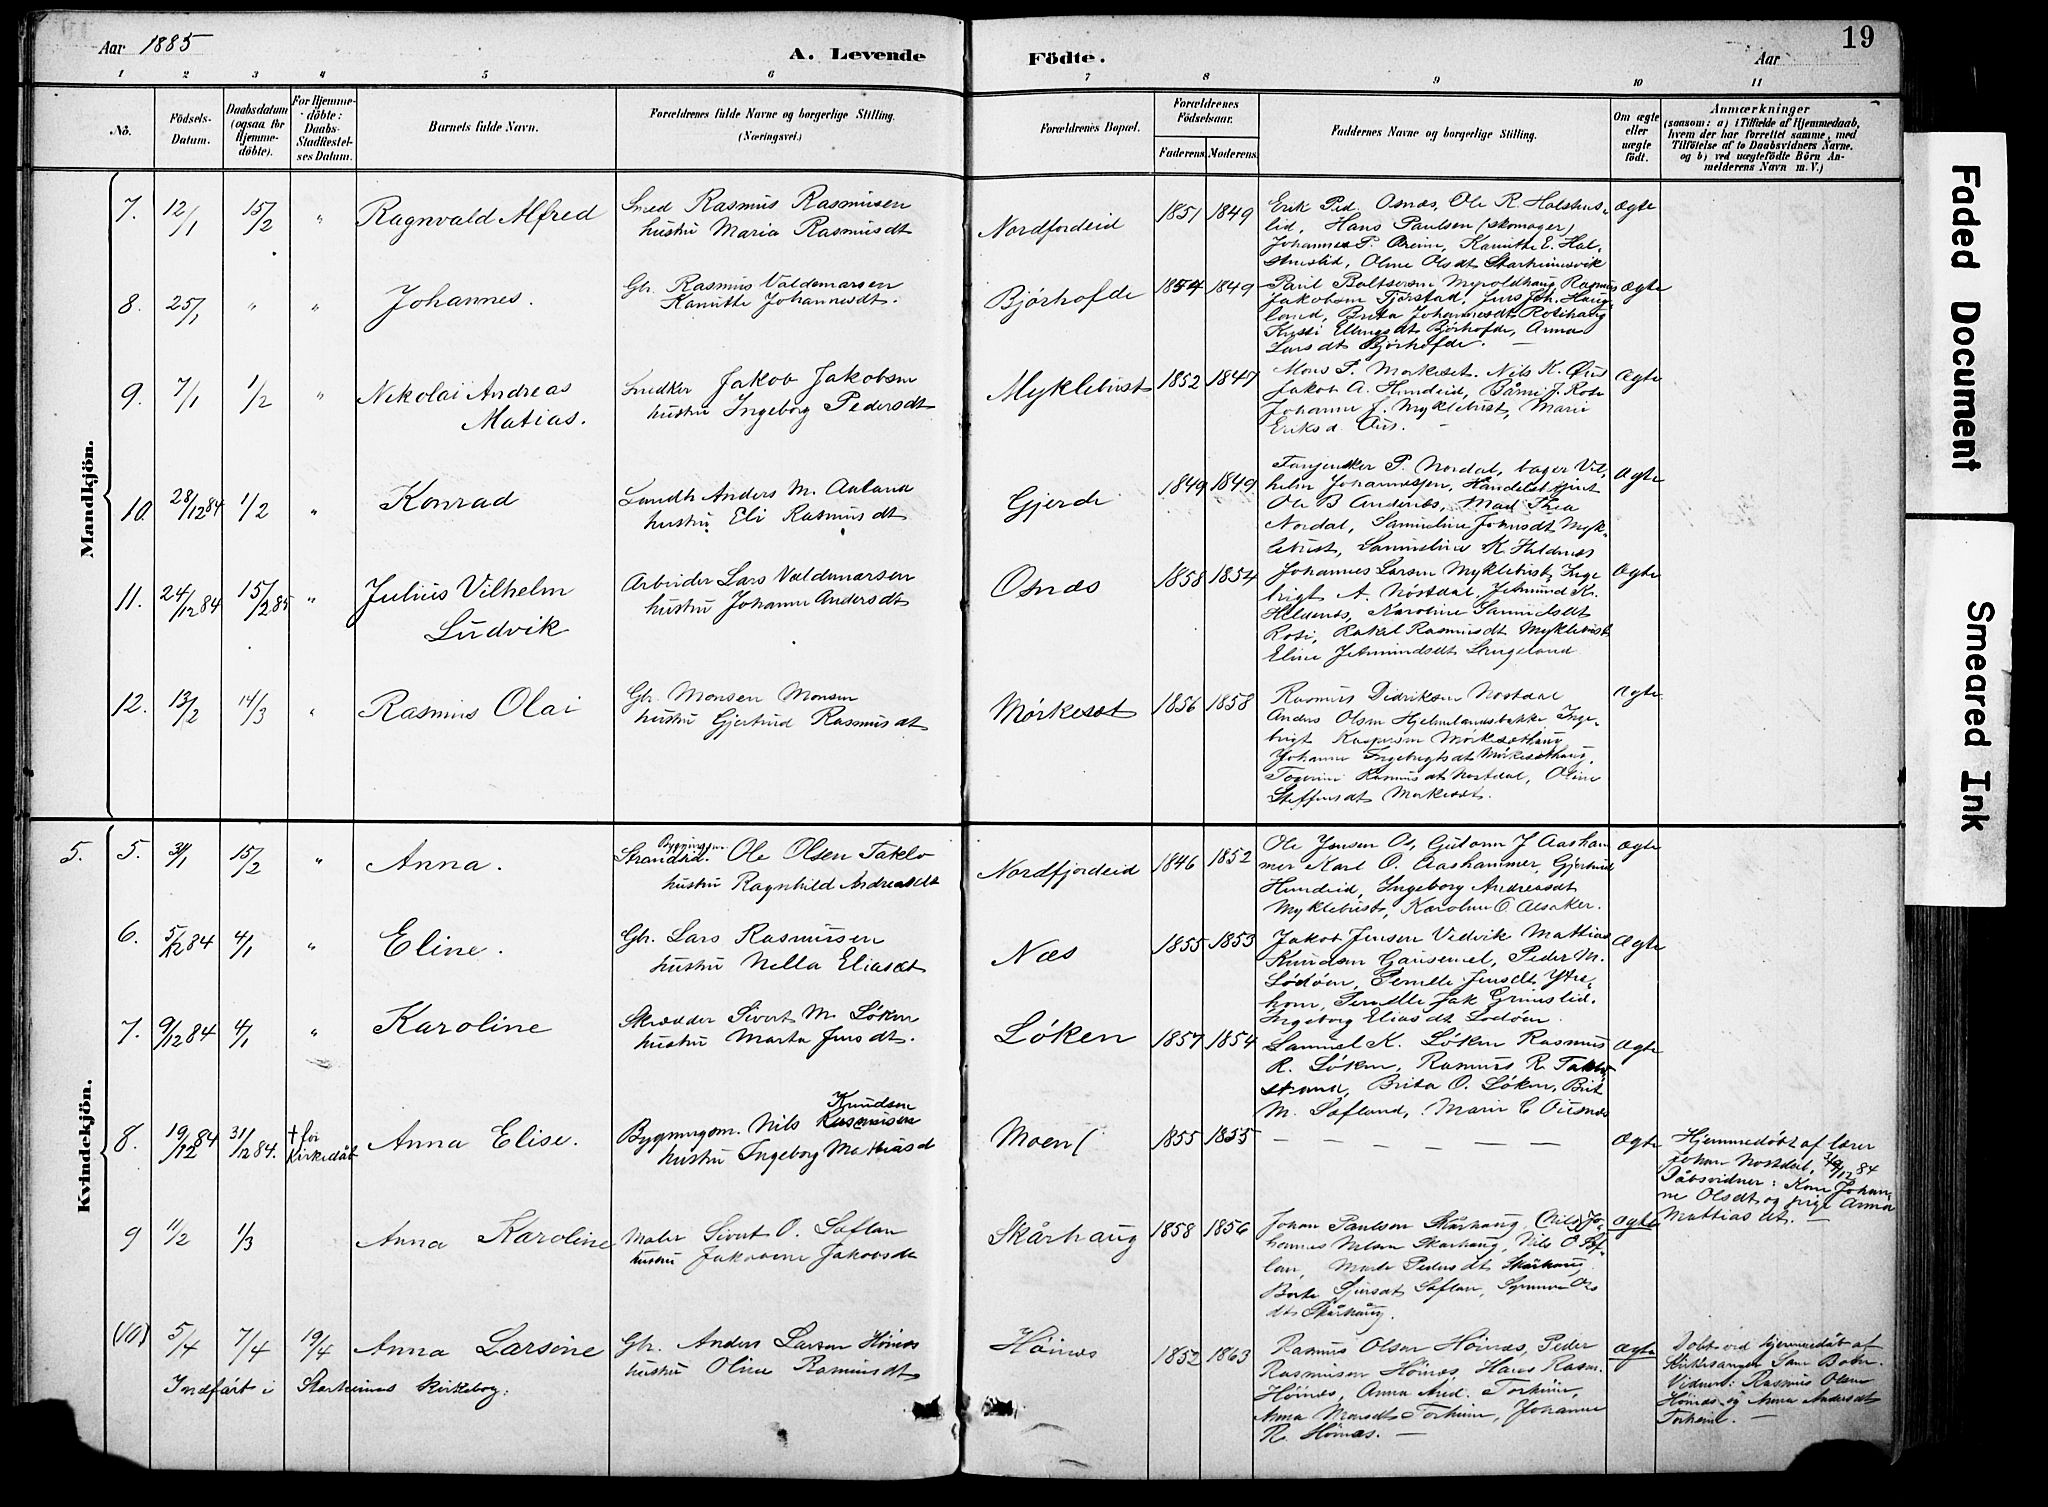 19
Aar 1885 A. Levende Födte. Aar
1 2 3 4 5 6 7 8 9 10 11
No.
Födsels-Datum.
Daabsdatum (ogsaa for Hjemme-döbte).
For Hjemme-döbte: Daabs-Stadfæstel-ses Datum.
Barnets fulde Navn.
Forældrenes fulde Navne og borgerlige Stilling. (Næringsvei.)
Forældrenes Bopæl.
Forældrenes Födselsaar.
Faderens. Moderens.
Faddernes Navne og borgerlige Stilling.
Om ægte eller uægte födt.
Anmærkninger
(saasom: a) i Tilfælde af Hjemmedaab,
hvem der har forrettet samme, med
Tilföielse af to Daabsvidners Navne.
og b) ved uægtefödte Börn An-
melderens Navn m. V.)
Mandkjön.
7. 12/1 15/2 " Ragnvald Alfred
Smed Rasmus Rasmusen
hustru Maria Rasmusdt
Nordfjordeid 1851 1849
Erik Ped. Osnæs, Ole R. Halstens-
lid, Hans Paulsen (skomager)
Johannes P. Breim, Kanutte E. Hal-
stenslid, Oline Olsdt Starheimsvik
Ægte
8. 25/1 " " Johannes.
Gbr. Rasmus Valdemarsen
Kanutte Johannesdt.
Bjørhofde 1854 1849
Paul Boltsersen Myroldhaug Rasmus
Jakobsen Fjørstad, Jens Joh. Haug
land, Brita Johannesdt Rosihaug
Kristi Ellingsdt Bjørhofde, Anna
Larsdt Bjørhofde.
Ægte
9. 7/1 1/2 " Nikolai Andreas
Matias.
Snedker Jakob Jakobsen
hustru Ingeborg Pedersdt
Myklebust 1852 1847
Mons P. Morkeset. Nils K. Øius
Jakob A. Hundeid, Bårni J. Rosi
Johanne J. Myklebust, Marie
Eriksd. Aus.
Ægte
10. 28/12 84 1/2 " Konrad
Landh. Anders M. Aaland
hustru Eli Rasmusdt
Gjerde 1849 1849
P. Nordal, bager Vil-
helm Johannesen, Handelsbetjent
Ole B Andenæs, Mad. Thea
Nordal, Samueline Johnsdt Myk-
lebust, Samueline K. Heldenæs
Ægte
11. 24/12 84 15/2 85 " Julius Vilhelm
Ludvik
Arbeider Lars Valdemarsen
hustru Johanne Andersdt
Osnæs 1858 1854
Johannes Larsen Myklebust, Inge
brigt A. Nøstdal, Jetmund K.
Heldenæs, Karoline Samuelsdt
Rosi, Rakel Rasmusdt Myklebust
Eline Jetmundsdt Langeland
Ægte
12. 13/2 14/3 " Rasmus Olai
Gbr. Monsen Monsen
hustru Gjertrud Rasmusdt
Mørkesæt 1856 1858
Rasmus Didriksen Nostdal
Anders Olsen Hjelmelandsbakke, Inge-
brigt Kaspersen Mørkesæthaug
Johanne Ingebrigtsdt Mørkesæthaug,
Rasmusdt Nostdal, Oline
Steffensdt Morkesæt.
Ægte
Kvindekjön.
5. 5. 31/1 15/2 " Anna.
Bygningsm.
Strandsid. Ole Olsen Taklo
hustru Ragnhild Andreasdt
Nordfjordeid 1846 1852
Ole Jensen Os, Gutorm J Aasham
mer Karl O. Aashammer, Gjertrud
Hundeid, Ingeborg Andreasdt
Myklebust, Karoline O. Alsaker.
Ægte
6. 5/12 84 4/1 " Eline.
Gbr. Lars Rasmusen
hustru Nella Eliasdt
Næs 1855 1853
Jakob Jensen Vedvik Mattias
Knudsen Gausemel, Peder M.
Lødøen, Pernille Jensdt Ytre-
horn, Pernille Jak Grimslid.
Ingeborg Eliasdt Lodøen
Ægte
7. 9/12 84 4/1 " Karoline
Skrædder Sivert M. Løken
hustru Marta Jensdt.
Løken 1857 1854
Samuel K. Løken Rasmus
R. Løken, Rasmus R. Taklo
strand, Brita O. Løken, Brit
M. Sofland, Marie C Ousnæs
Ægte
8. 19/12 84 31/12 84. † for kirkedåb Anna Elise.
Knudsen
Bygningsm. Nils Rasmusen
hustru Ingeborg Mathiasd
Moen 1855 1855 — — — — — — Ægte
Hjemmedøbt af lærer
Johan Nostdal, 31/12 84
Dåbsvidner: Kone Johan-
ne Olsdt og pige Anna
Mattiasdt. —
9 11/2 1/3 Anna Karoline
Maler Sivert O. Soflan
hustru Jakobine Jakobsdt
Skårhaug 1858 1856
Johan Paulsen Skårhaug, (Nils) Jo-
hannes Nilsen Skarhaug, Nils O Sof-
lan, Marte Pedersdt Skårhaug,
Borte Sjursdt Soflan, Synneve Ols
dt Skårhaug.
Ægte
(10) 5/4 7/4 19/4 Anna Larsine
Gbr. Anders Larsen Høinæs
hustru Oline Rasmusdt
Høinæs 1852 1863
Rasmus Olsen Høinæs, Peder
Rasmusen Høinæs, Hans Rasm.
Høinæs, Anna And. Torheim,
Anna Monsdt Torheim, Johanne
R. Høinæs. —
Ægte
Døbt ved hjemmedåb af
Kirkesanger Sam Bolm.
Vidner: Rasmus Olsen
Høinæs og Anna Andersdt
Torheim. —
Indført i Starheims kirkebog:
Faded Document
Smeared Ink